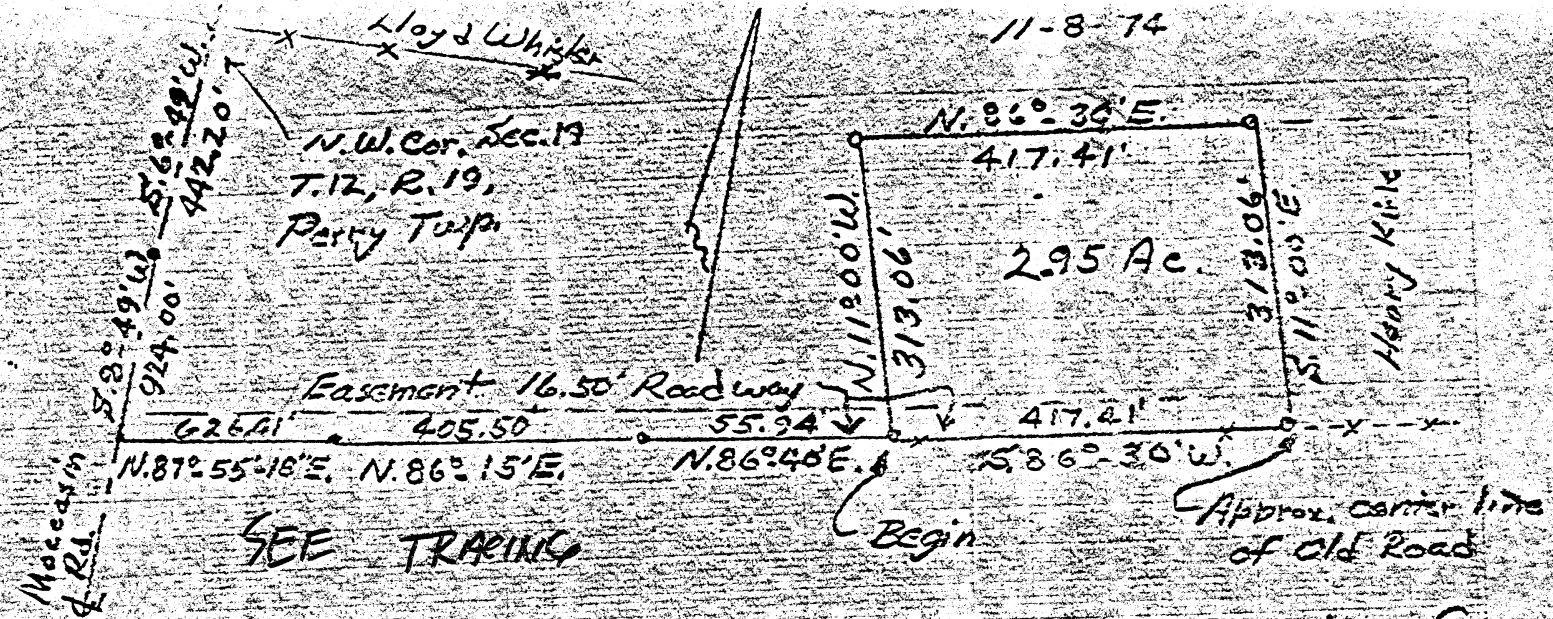 Lloyd Whisler
11-8-74
S. 6°-49' W.
442.20'
N.W. Cor. Sec. 19
T.12, R.19,
Perry Twp.
N. 86°-30' E.
417.41'
N. 11°00' W.
313.06'
2.95 Ac.
313.06'
S. 11°00' E
Henry Kirk
S. 8°-49' W
924.00'
Easement 16.50' Roadway
626.61' 405.50' 55.94' 417.41'
N. 87°-55'-18" E. N. 86°15' E. N. 86°40' E. S. 86°-30' W.
Moccasin
Rd.
SEE TRACING
Begin
Approx. center line
of Old Road